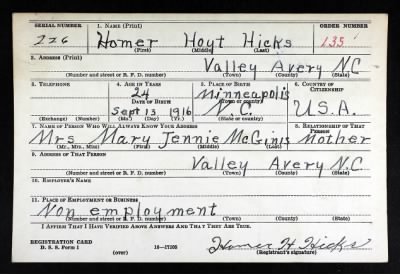 SERIAL NUMBER 1. NAME (Print) ORDER NUMBER
226 Homer Hoyt Hicks 135
(First) (Middle) (Last)
2. ADDRESS (Print)
Valley Avery N.C
(Number and street or R. F. D. number) (Town) (County) (State)
3. TELEPHONE 4. AGE IN YEARS 5. PLACE OF BIRTH 6. COUNTRY OF CITIZENSHIP
24 Minneapolis
DATE OF BIRTH (Town or county)
Sept 13 1916 N.C. U.S.A.
(Exchange) (Number) (Mo.) (Day) (Yr.) (State or country)
7. NAME OF PERSON WHO WILL ALWAYS KNOW YOUR ADDRESS 8. RELATIONSHIP OF THAT PERSON
Mrs Mary Jennie McGinis Mother
(Mr., Mrs., Miss) (First) (Middle) (Last)
9. ADDRESS OF THAT PERSON
Valley Avery N.C
(Number and street or R. F. D. number) (Town) (County) (State)
10. EMPLOYER'S NAME
11. PLACE OF EMPLOYMENT OR BUSINESS
Non employment
(Number and street or R. F. D. number) (Town) (County) (State)
I AFFIRM THAT I HAVE VERIFIED ABOVE ANSWERS AND THAT THEY ARE TRUE.
REGISTRATION CARD
D. S. S. Form 1 (over) 16—17105 Homer H Hicks
(Registrant's signature)